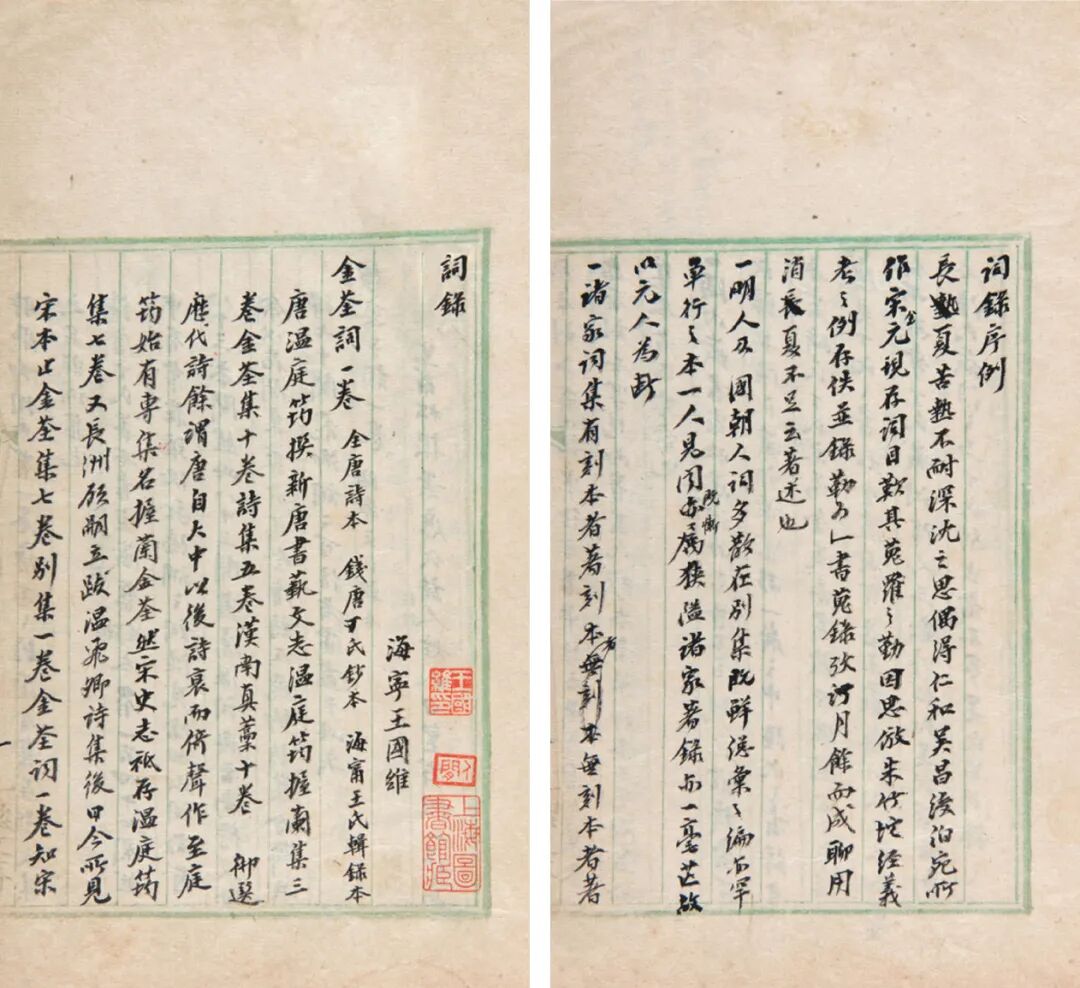 詞錄序例
長夏苦熱不耐深沈之思偶得仁和吳昌綬伯宛所
作宋金元現存詞目歎其蒐羅之勤因思倣朱竹垞經義
考之例存佚並錄勒為一書蒐錄攷訂月餘而成聊用
消長夏不足云著述也
一明人及國朝人詞多散在別集既鮮總彙之編亦罕
單行之本一人見聞既慚狹隘諸家著錄亦一毫芒故
以元人為斷
一諸家詞集有刻本者著刻本無刻本者著
詞錄
海寧王國維
王國維印
人間
上海圖書館藏
金荃詞一卷 全唐詩本 錢唐丁氏鈔本 海甯王氏輯錄本
唐溫庭筠撰新唐書藝文志溫庭筠握蘭集三
卷金荃集十卷詩集五卷漢南真藁十卷 御選
歷代詩餘謂唐自大中以後詩衰而倚聲作至庭
筠始有專集名握蘭金荃然宋史志祗存溫庭筠
集七卷又長洲顧嗣立跋溫飛卿詩集後曰今所見
宋本止金荃集七卷別集一卷金荃詞一卷知宋